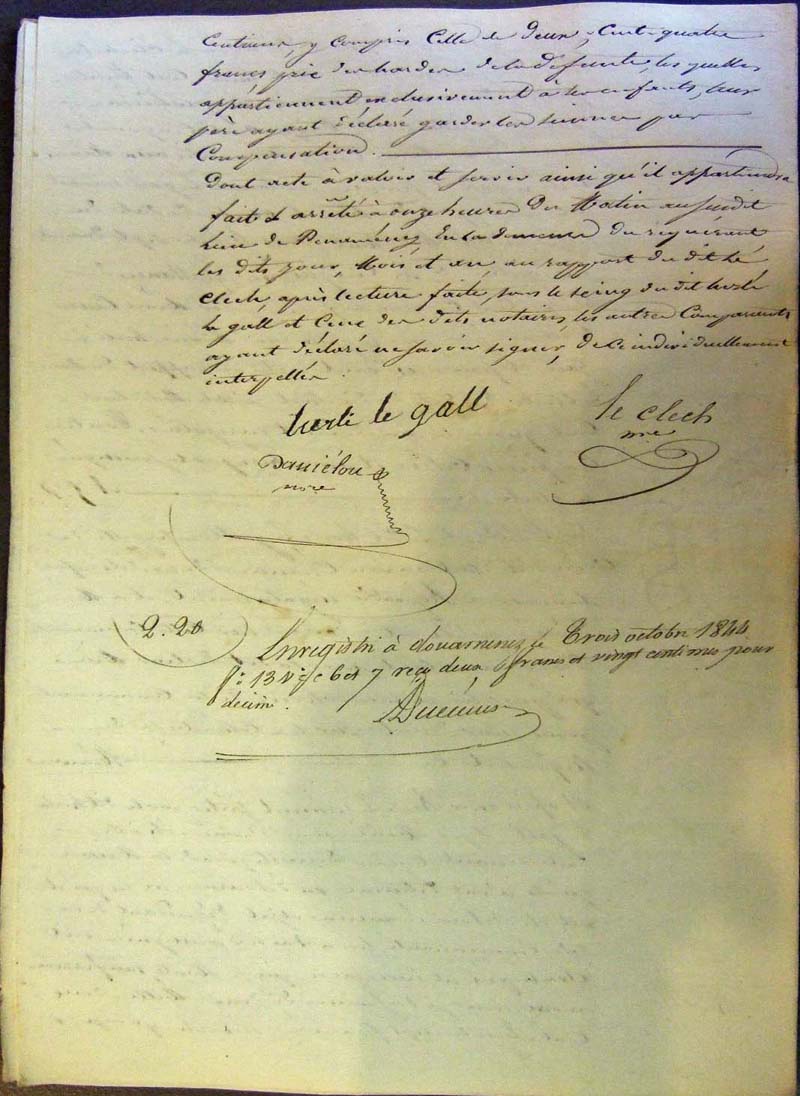 Centimes, y compris celle de deux, cent quatre
francs prix des hardes de la défunte, les quelles
appartiennent exclusivement à ses enfants, leur
père ayant déclaré garder les siennes par
Compensation.
Dont acte à valoir et servir ainsi qu'il appartiendra
fait & arrêté à onze heures du Matin au susdit
lieu de en la demeure du requérant
les dits jour, Mois et an au rapport du dit Le
clech, après lecture faite, sous le seing du dit
le gall et ceux des dits notaires, les autres Comparants
ayant déclaré ne savoir signer, de ce individuellement
interpellés.
le gall
le clech
nre
Daniélou
nore
2.20
Enregistré à douarnenez le trois octobre 1844
fo: 13 Vo: c 6 et 7 reçu deux francs et vingt centimes pour
décime.